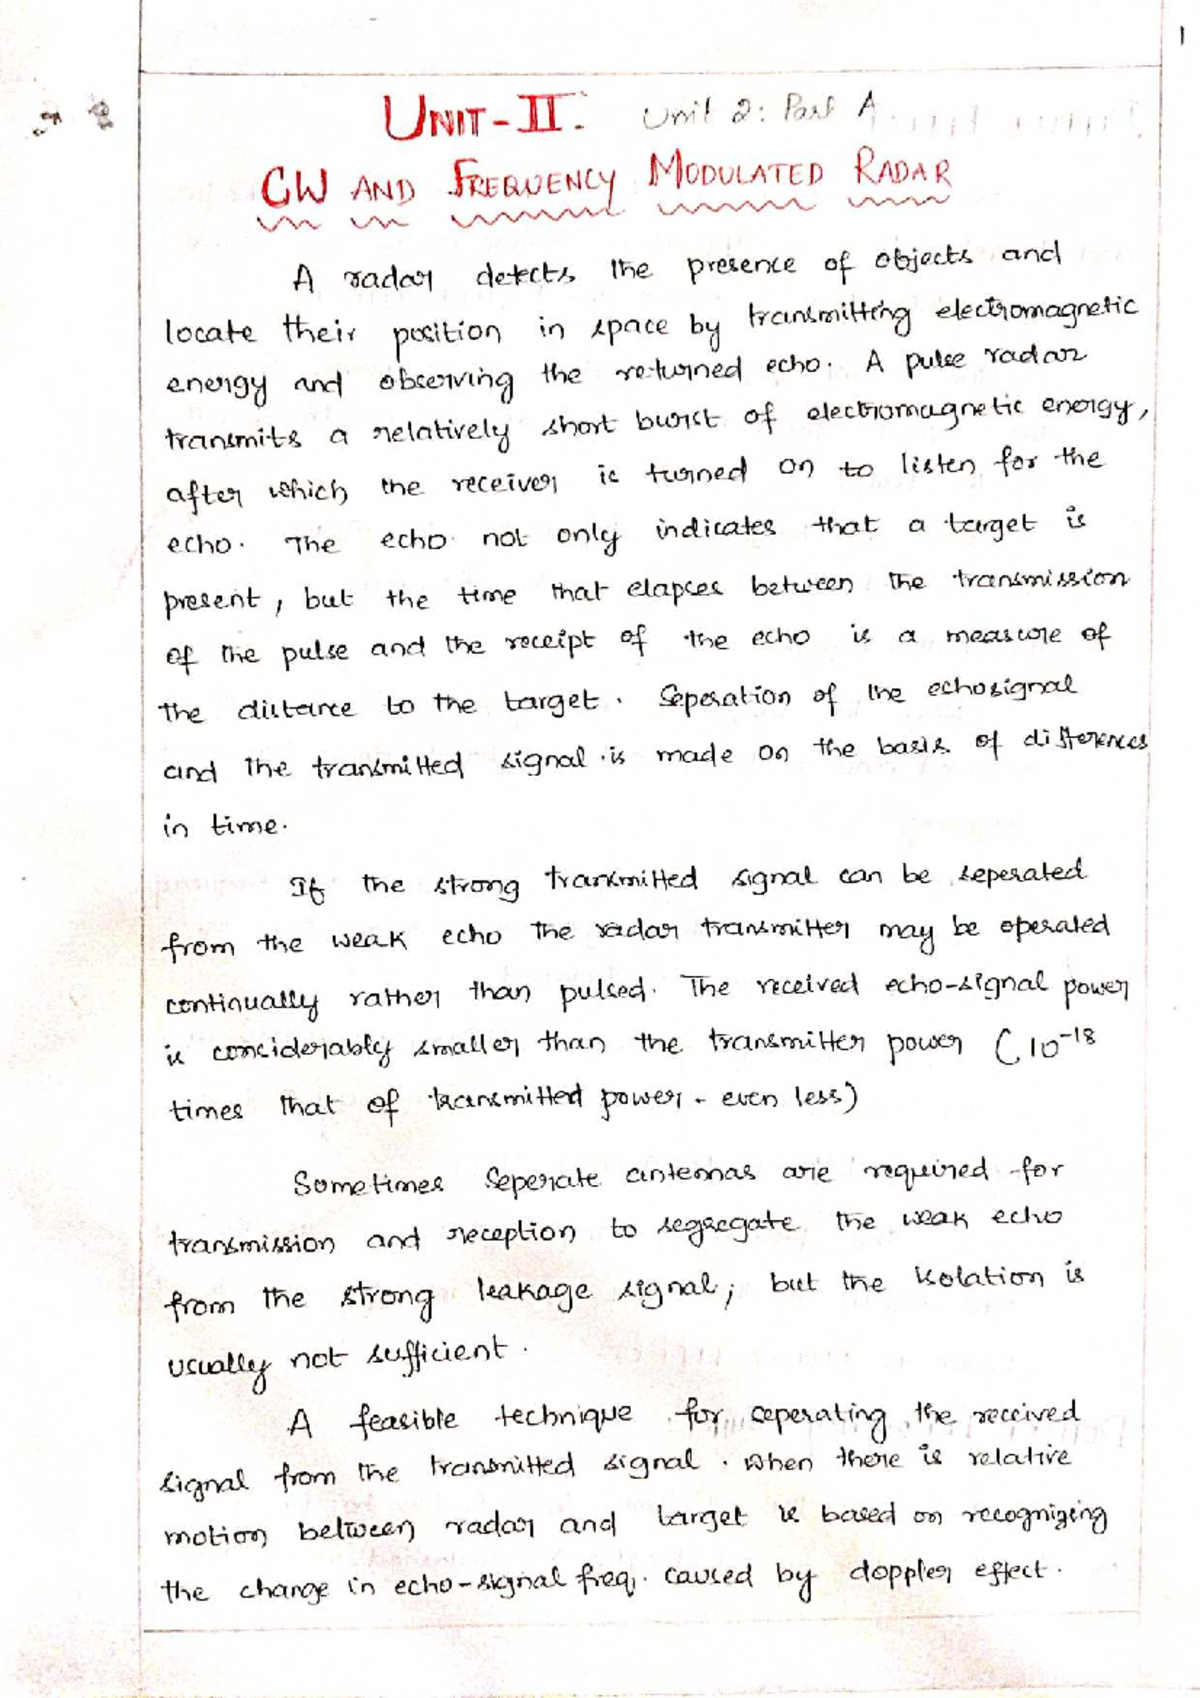 1
UNIT-II. Unit 2: Part A
CW AND FREQUENCY MODULATED RADAR
A radar detects the presence of objects and
locate their position in space by transmitting electromagnetic
energy and observing the returned echo. A pulse radar
transmits a relatively short burst of electromagnetic energy,
after which the receiver is turned on to listen for the
echo. The echo not only indicates that a target is
present, but the time that elapses between the transmission
of the pulse and the receipt of the echo is a measure of
the distance to the target. Seperation of the echosignal
and the transmitted signal is made on the basis of differences
in time.
If the strong transmitted signal can be seperated
from the weak echo the radar transmitter may be operated
continually rather than pulsed. The received echo-signal power
is considerably smaller than the transmitter power (10⁻¹⁸
times that of transmitted power - even less)
Sometimes seperate antennas are required for
transmission and reception to segregate the weak echo
from the strong leakage signal; but the isolation is
usually not sufficient.
A feasible technique for seperating the received
signal from the transmitted signal. when there is relative
motion between radar and target is based on recognizing
the change in echo-signal freq. caused by doppler effect.